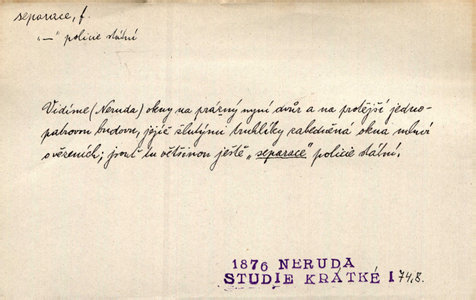 separace, f.
"—" policie státní
Vidíme (Neruda) okny na prázný nyní dvůr a na protější jedno-
patrovou budovu, jejíž žlutými truhlíky zabedněná okna mluví
o vězeních; jsouť tu většinou ještě „separace" policie státní.
1876 NERUDA
STUDIE KRÁTKÉ I 74,8.